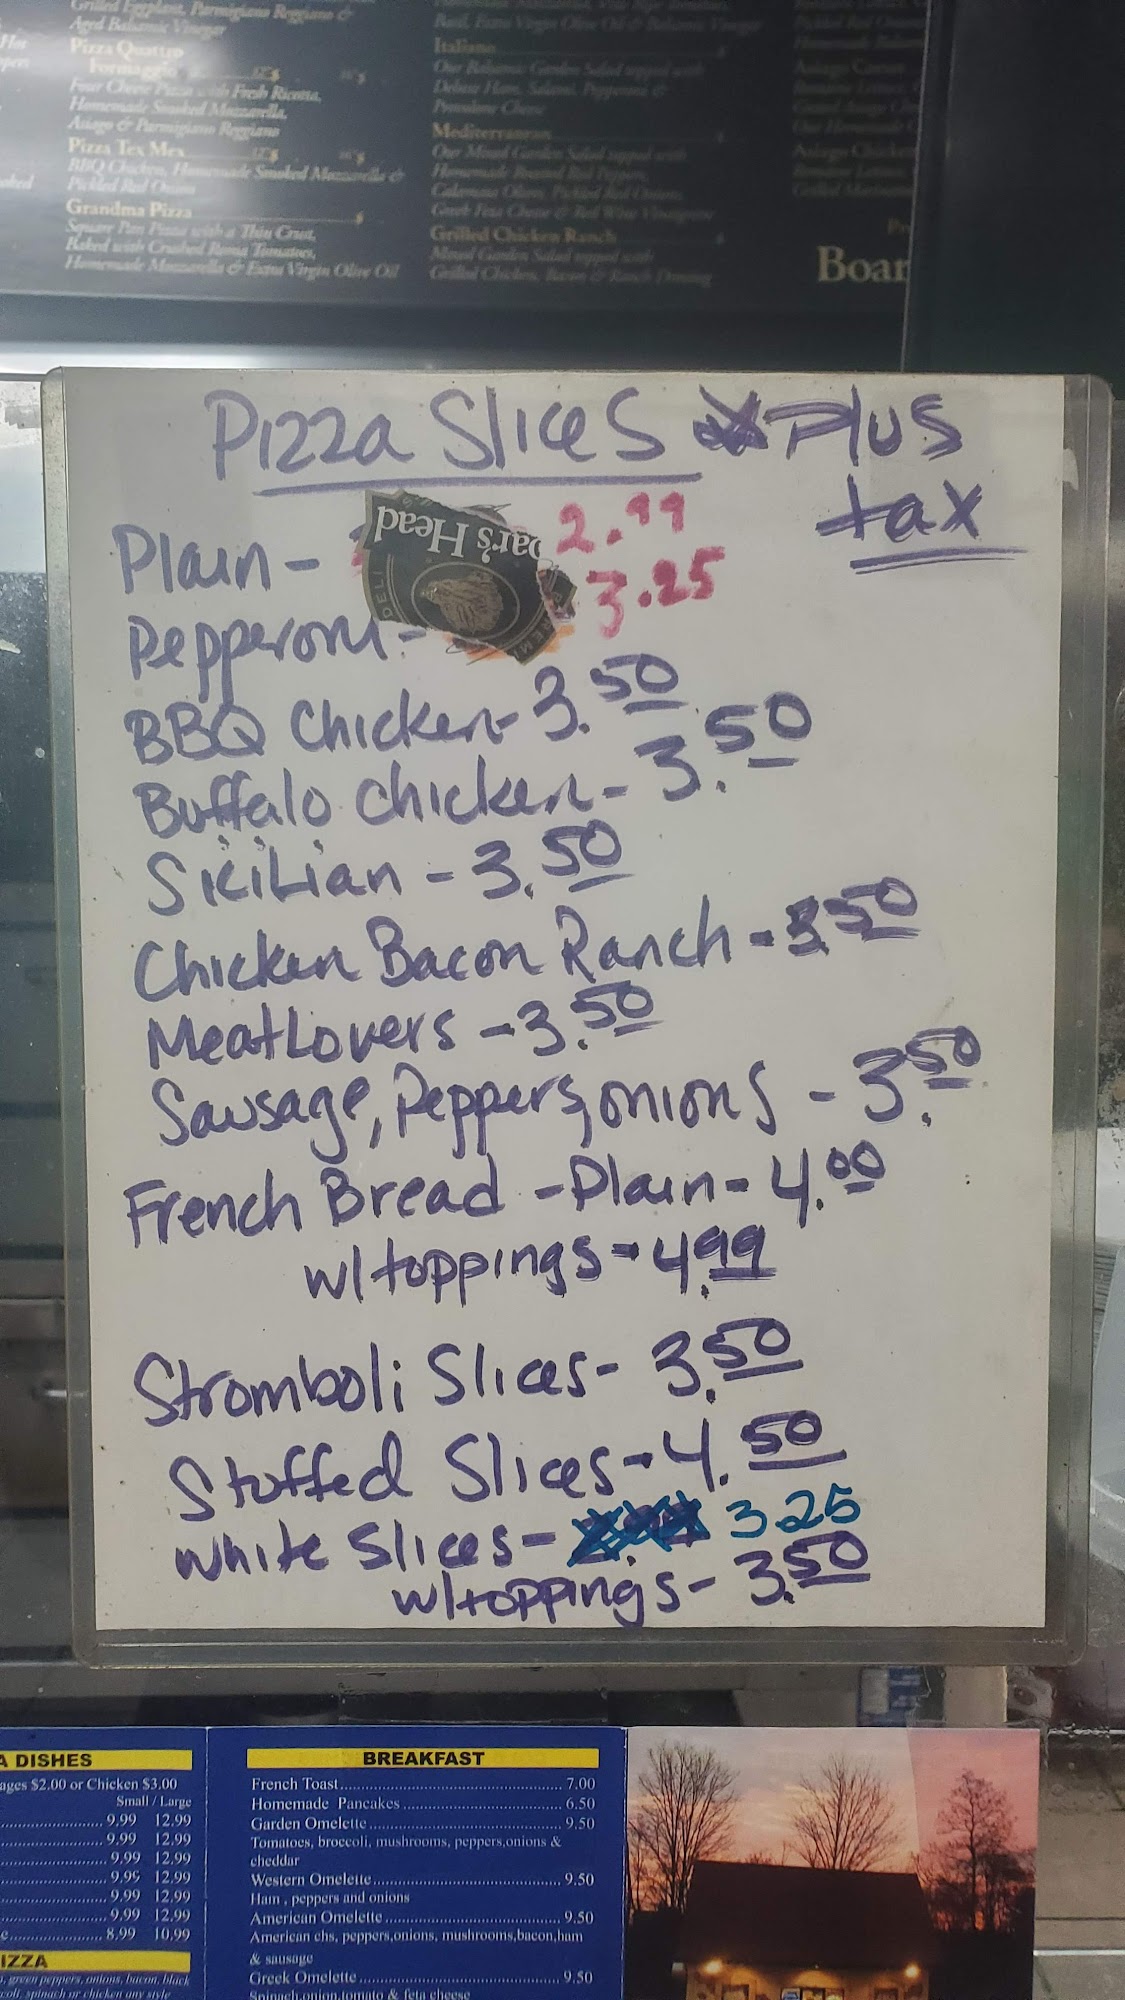 Grilled Eggplant, Parmigiano Reggiano &
Aged Balsamic Vinegar
Pizza Quattro
Formaggio
Four Cheese Pizza with Fresh Ricotta,
Homemade Smoked Mozzarella,
Asiago & Parmigiano Reggiano
Pizza Tex Mex
BBQ Chicken, Homemade Smoked Mozzarella &
Pickled Red Onion
Grandma Pizza
Square Pan Pizza with a Thin Crust,
Baked with Crushed Roma Tomatoes,
Homemade Mozzarella & Extra Virgin Olive Oil
Italiano
Our Balsamic Garden Salad topped with
Deluxe Ham, Salami, Pepperoni &
Provolone Cheese
Mediterranean
Our Mixed Garden Salad topped with
Homemade Roasted Red Peppers,
Calamata Olives, Pickled Red Onions,
Greek Feta Cheese & Red Wine Vinaigrette
Grilled Chicken Ranch
Mixed Garden Salad topped with
Grilled Chicken, Bacon & Ranch Dressing
Boar
Pizza Slices Plus
tax
Plain - 2.99
oar's Head
DELI
Pepperoni - 3.25
BBQ Chicken - 3.50
Buffalo Chicken - 3.50
Sicilian - 3.50
Chicken Bacon Ranch - 3.50
MeatLovers - 3.50
Sausage, Peppers, onions - 3.50
French Bread - Plain - 4.00
w/toppings - 4.99
Stromboli Slices - 3.50
Stuffed Slices - 4.50
White Slices - 3.25
w/toppings - 3.50
A DISHES
ages $2.00 or Chicken $3.00
Small / Large
9.99 12.99
9.99 12.99
9.99 12.99
9.99 12.99
9.99 12.99
9.99 12.99
e 8.99 10.99
IZZA
, green peppers, onions, bacon, black
coli, spinach or chicken any style
BREAKFAST
French Toast 7.00
Homemade Pancakes 6.50
Garden Omelette 9.50
Tomatoes, broccoli, mushrooms, peppers,onions &
cheddar
Western Omelette 9.50
Ham , peppers and onions
American Omelette 9.50
American chs, peppers,onions, mushrooms,bacon,ham
& sausage
Greek Omelette 9.50
Spinach,onion,tomato & feta cheese